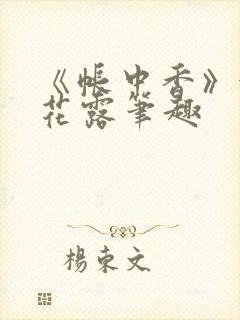 《帐中香》
花露笔趣
杨束文